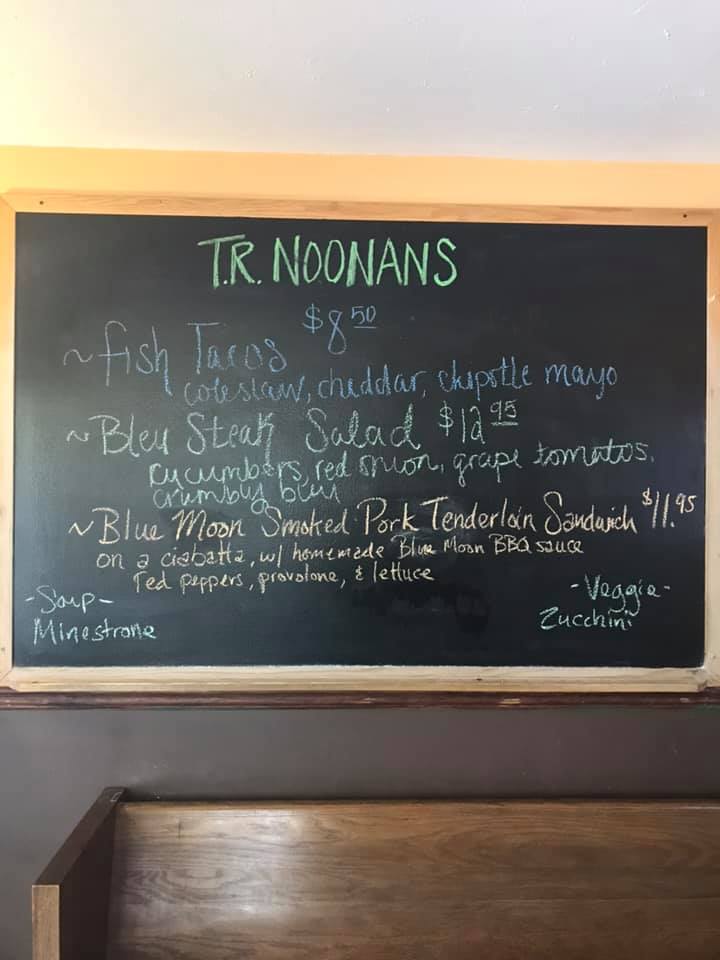 T.R. NOONANS
~ fish Tacos $8 50
coleslaw, cheddar, chipotle mayo
~ Bleu Steak Salad $12 95
cucumbers, red onion, grape tomatos,
crumbly bleu
~ Blue Moon Smoked Pork Tenderloin Sandwich $11.95
on a ciabatta, w/ homemade Blue Moon BBQ sauce
red peppers, provolone, & lettuce
-Soup-
Minestrone
-Veggie-
Zucchini